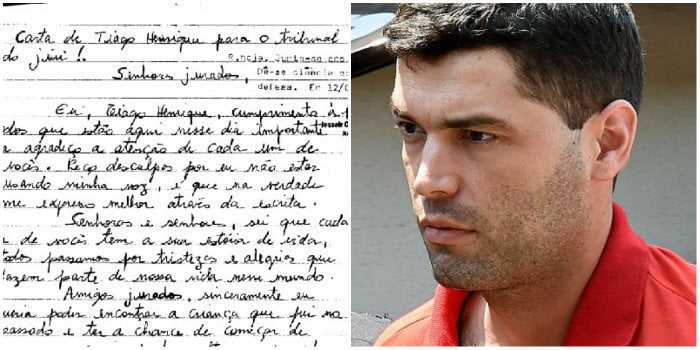 Carta de Tiago Henrique para o tribunal
do júri!.
Senhores jurados,
defesa. Em 12/0
Eu, Tiago Henrique, cumprimento à
dos que estão aqui nesse dia importante
agradeço a atenção de cada um de
vocês. Peço desculpas por eu não estar
usando minha voz, é que na verdade
me expresso melhor através da escrita.
Senhoras e senhores, sei que cada
de vocês tem a sua estória de vida,
todos passamos por tristezas e alegrias que
fazem parte de nossa vida nesse mundo.
Amigos jurados, sinceramente eu
queria poder encontrar a criança que fui no
passado e ter a chance de começar de